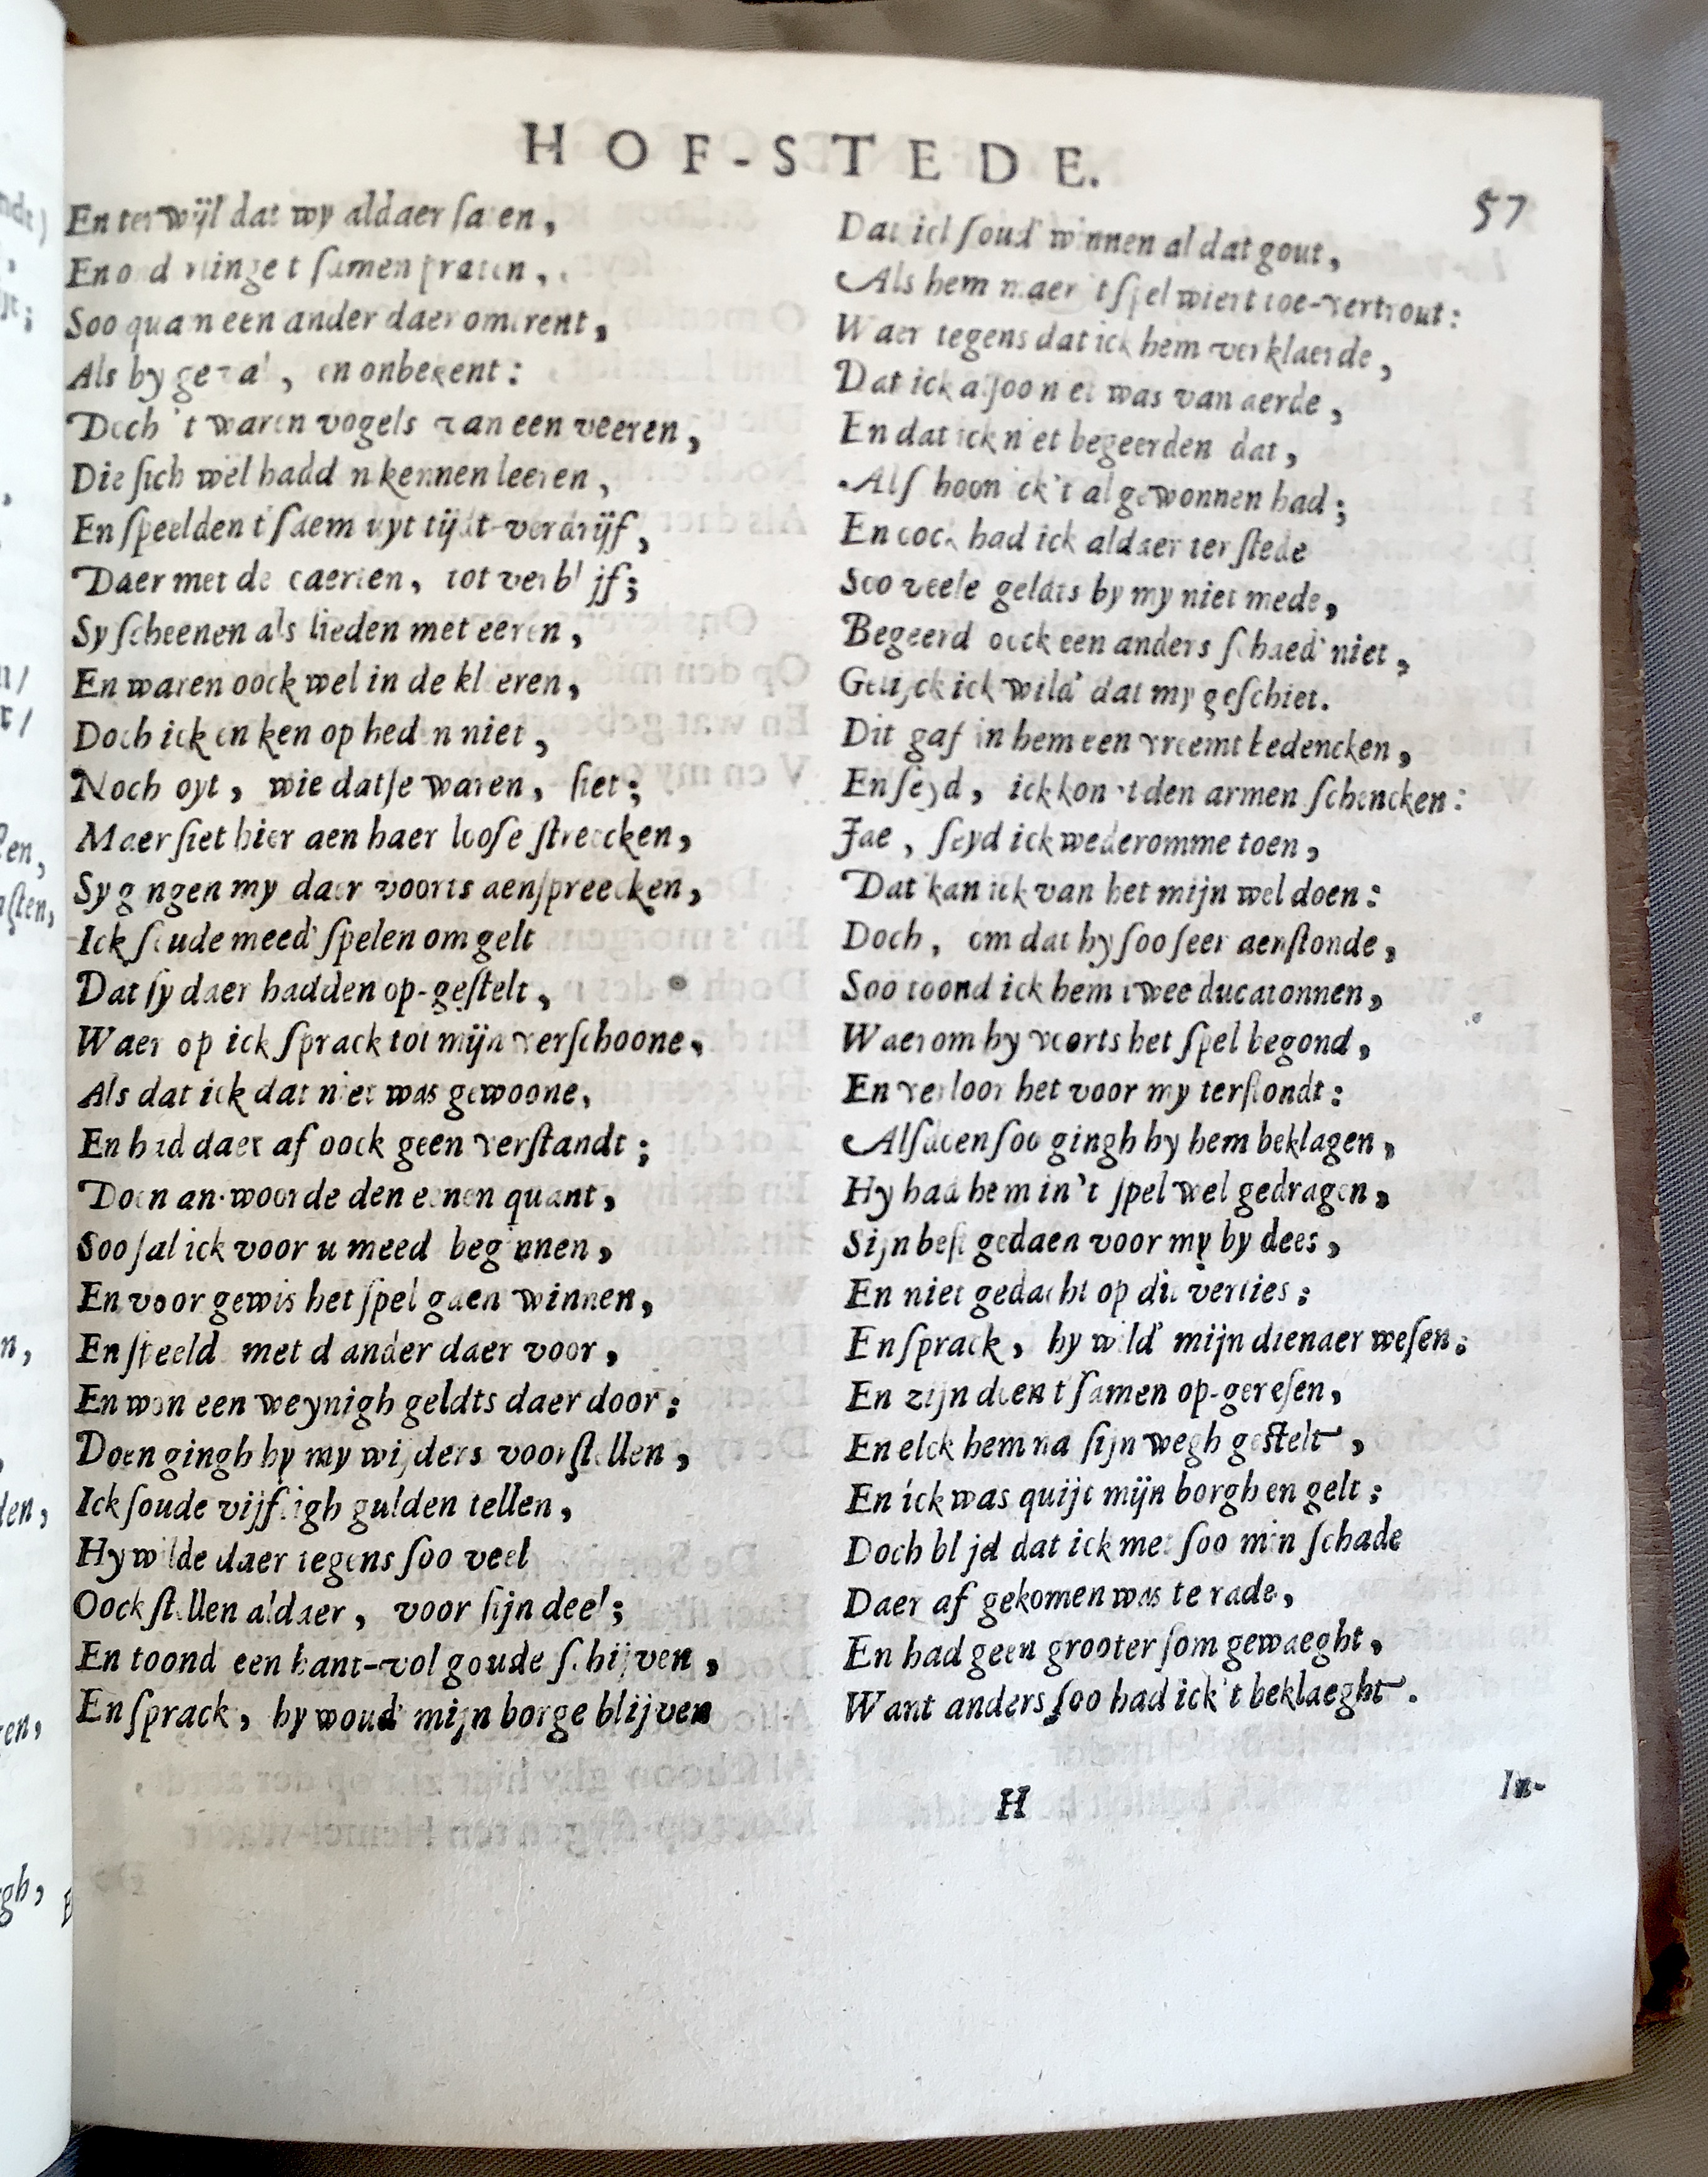 HOF-STEDE.
57
En terwijl dat wy aldaer saten,
En ond  dinge t samen praten,
Soo quam een ander daer omtrent,
Als by geval, en onbekent:
Doch 't waren vogels van een veeren,
Die sich wel hadd'n kennen leeren,
En speelden t'saem uyt tijdt-verdrijf,
Daer met de caerten, tot verblijf;
Sy scheenen als lieden met eeren,
En waren oock wel in de kleeren,
Doch ick en ken op heden niet,
Noch oyt, wie datse waren, siet;
Maer siet hier aen haer loose streecken,
Sy gingen my daer voorts aenspreecken,
Ick soude meed' spelen om gelt
Dat sy daer hadden op-gestelt,
Waer op ick sprack tot mijn verschoone,
Als dat ick dat niet was gewoone,
En had daer af oock geen verstandt;
Doen antwoorde den eenen quant,
Soo sal ick voor u meed beginnen,
En voor gewis het spel gaen winnen,
En speeld met d ander daer voor,
En won een weynigh geldts daer door;
Doen gingh hy my wijders voorstellen,
Ick soude vijftigh gulden tellen,
Hy wilde daer tegens soo veel
Oock stellen aldaer, voor sijn deel;
En toond een hant-vol goude schijven,
En sprack, hy woud' mijn borge blijven
Dat ick soud' winnen al dat gout,
Als hem maer 't spel wiert toe-vertrout:
Waer tegens dat ick hem verklaerde,
Dat ick alsoo niet was van aerde,
En dat ick niet begeerden dat,
Alschoon ick't al gewonnen had;
En oock had ick aldaer ter stede
Soo veele geldts by my niet mede,
Begeerd oock een anders schaed' niet,
Gelijck ick wild' dat my geschiet.
Dit gaf in hem een vreemt bedencken,
En seyd, ick kon 't den armen schencken:
Jae, seyd ick wederomme toen,
Dat kan ick van het mijn wel doen:
Doch, om dat hy soo seer aenstonde,
Soo toond ick hem twee ducatonnen,
Waerom hy voorts het spel begond,
En verloor het voor my terstondt:
Alsdoen soo gingh hy hem beklagen,
Hy had hem in't spel wel gedragen,
Sijn best gedaen voor my by dees,
En niet gedacht op dit verlies;
En sprack, hy wild' mijn dienaer wesen;
En zijn doen t samen op-geresen,
En elck hem na sijn wegh gestelt,
En ick was quijt mijn borgh en gelt;
Doch blijd dat ick met soo min schade
Daer af gekomen was te rade,
En had geen grooter som gewaeght,
Want anders soo had ick't beklaeght.
H
In-